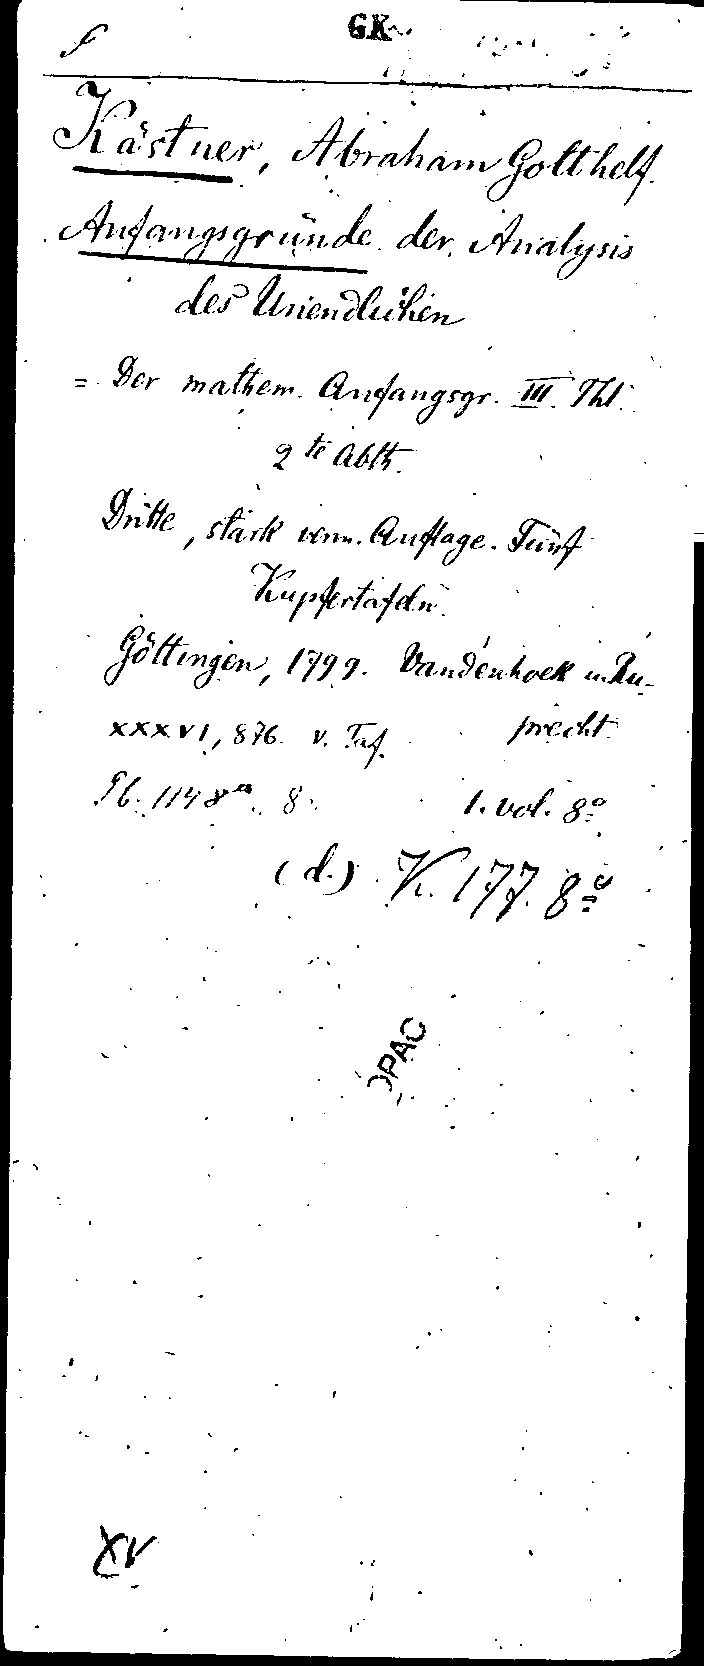 f
GK
Kästner, Abraham Gotthelf.
Anfangsgründe der Analysis
des Unendlichen
= Der mathem. Anfangsgr. III. Thl.
2te Abth.
Dritte, stark verm. Auflage. Fünf
Kupfertafeln.
Göttingen, 1799. Vandenhoek u. Ru-
precht.
XXXVI, 876. V. Taf.
Pb. 1148 8.
1. vol. 8º
(d.) K. 177. 8º
OPAC
XV